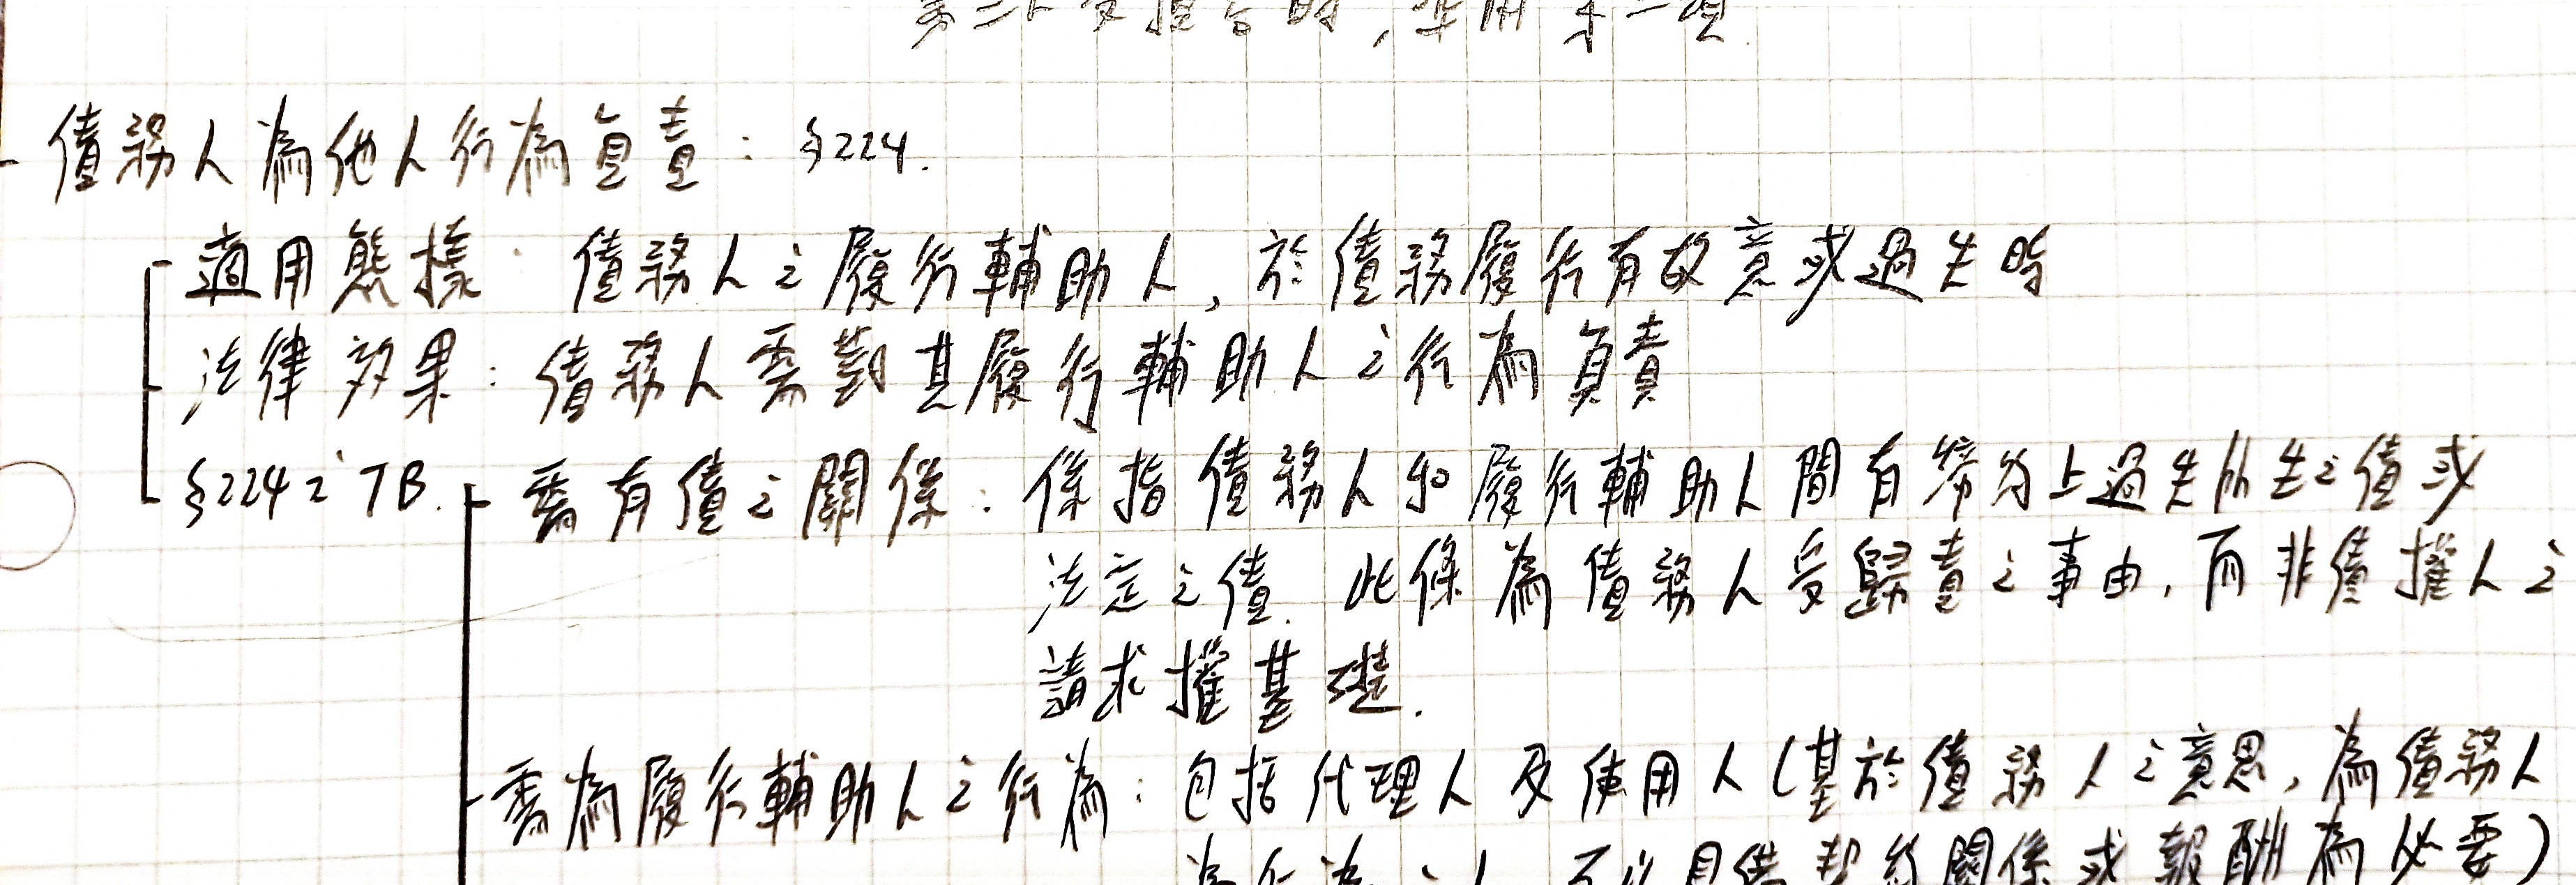 第三人受損害時,準用第一項
債務人為他人行為負責:§224.
適用態樣:債務人之履行輔助人,於債務履行有故意或過失時
法律效果:債務人需對其履行輔助人之行為負責
§224之TB.需有債之關係:係指債務人和履行輔助人間有勞務上過失所生之債或
法定之債.此條為債務人受歸責之事由,而非債權人之
請求權基礎.
需為履行輔助人之行為:包括代理人及使用人(基於債務人之意思,為債務人
為行為之人,不以具備契約關係或報酬為必要)